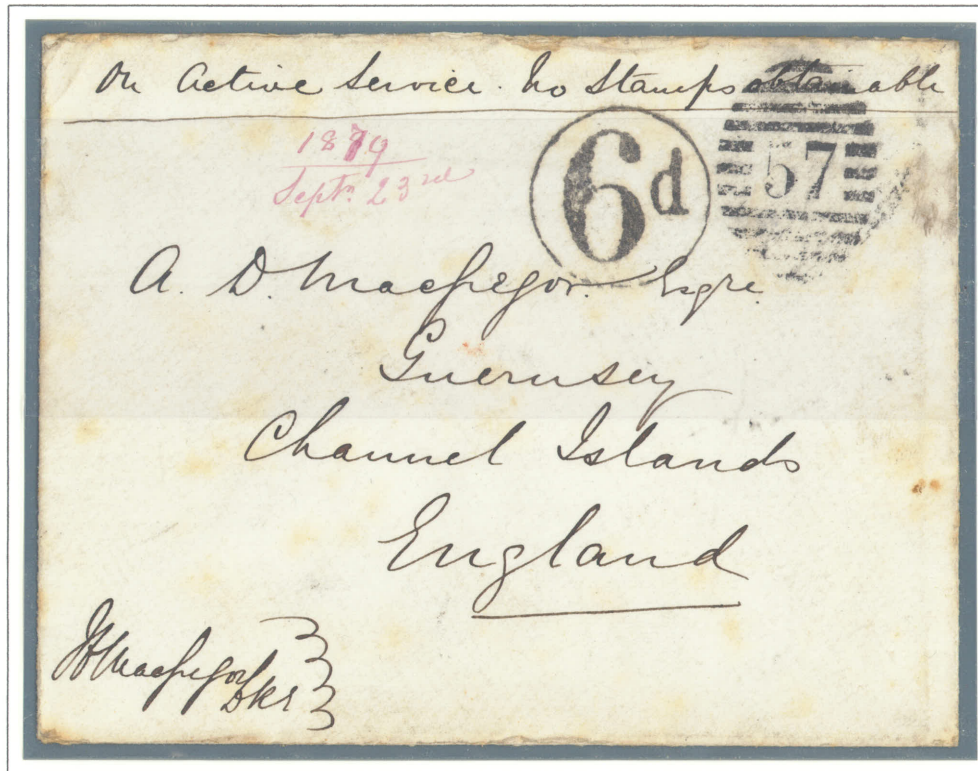 On Active Service. No Stamps obtainable
1879
Septr. 23rd
6d
57
A. D. MacGregor. Esqre.
Guernsey
Channel Islands
England
MacGregor